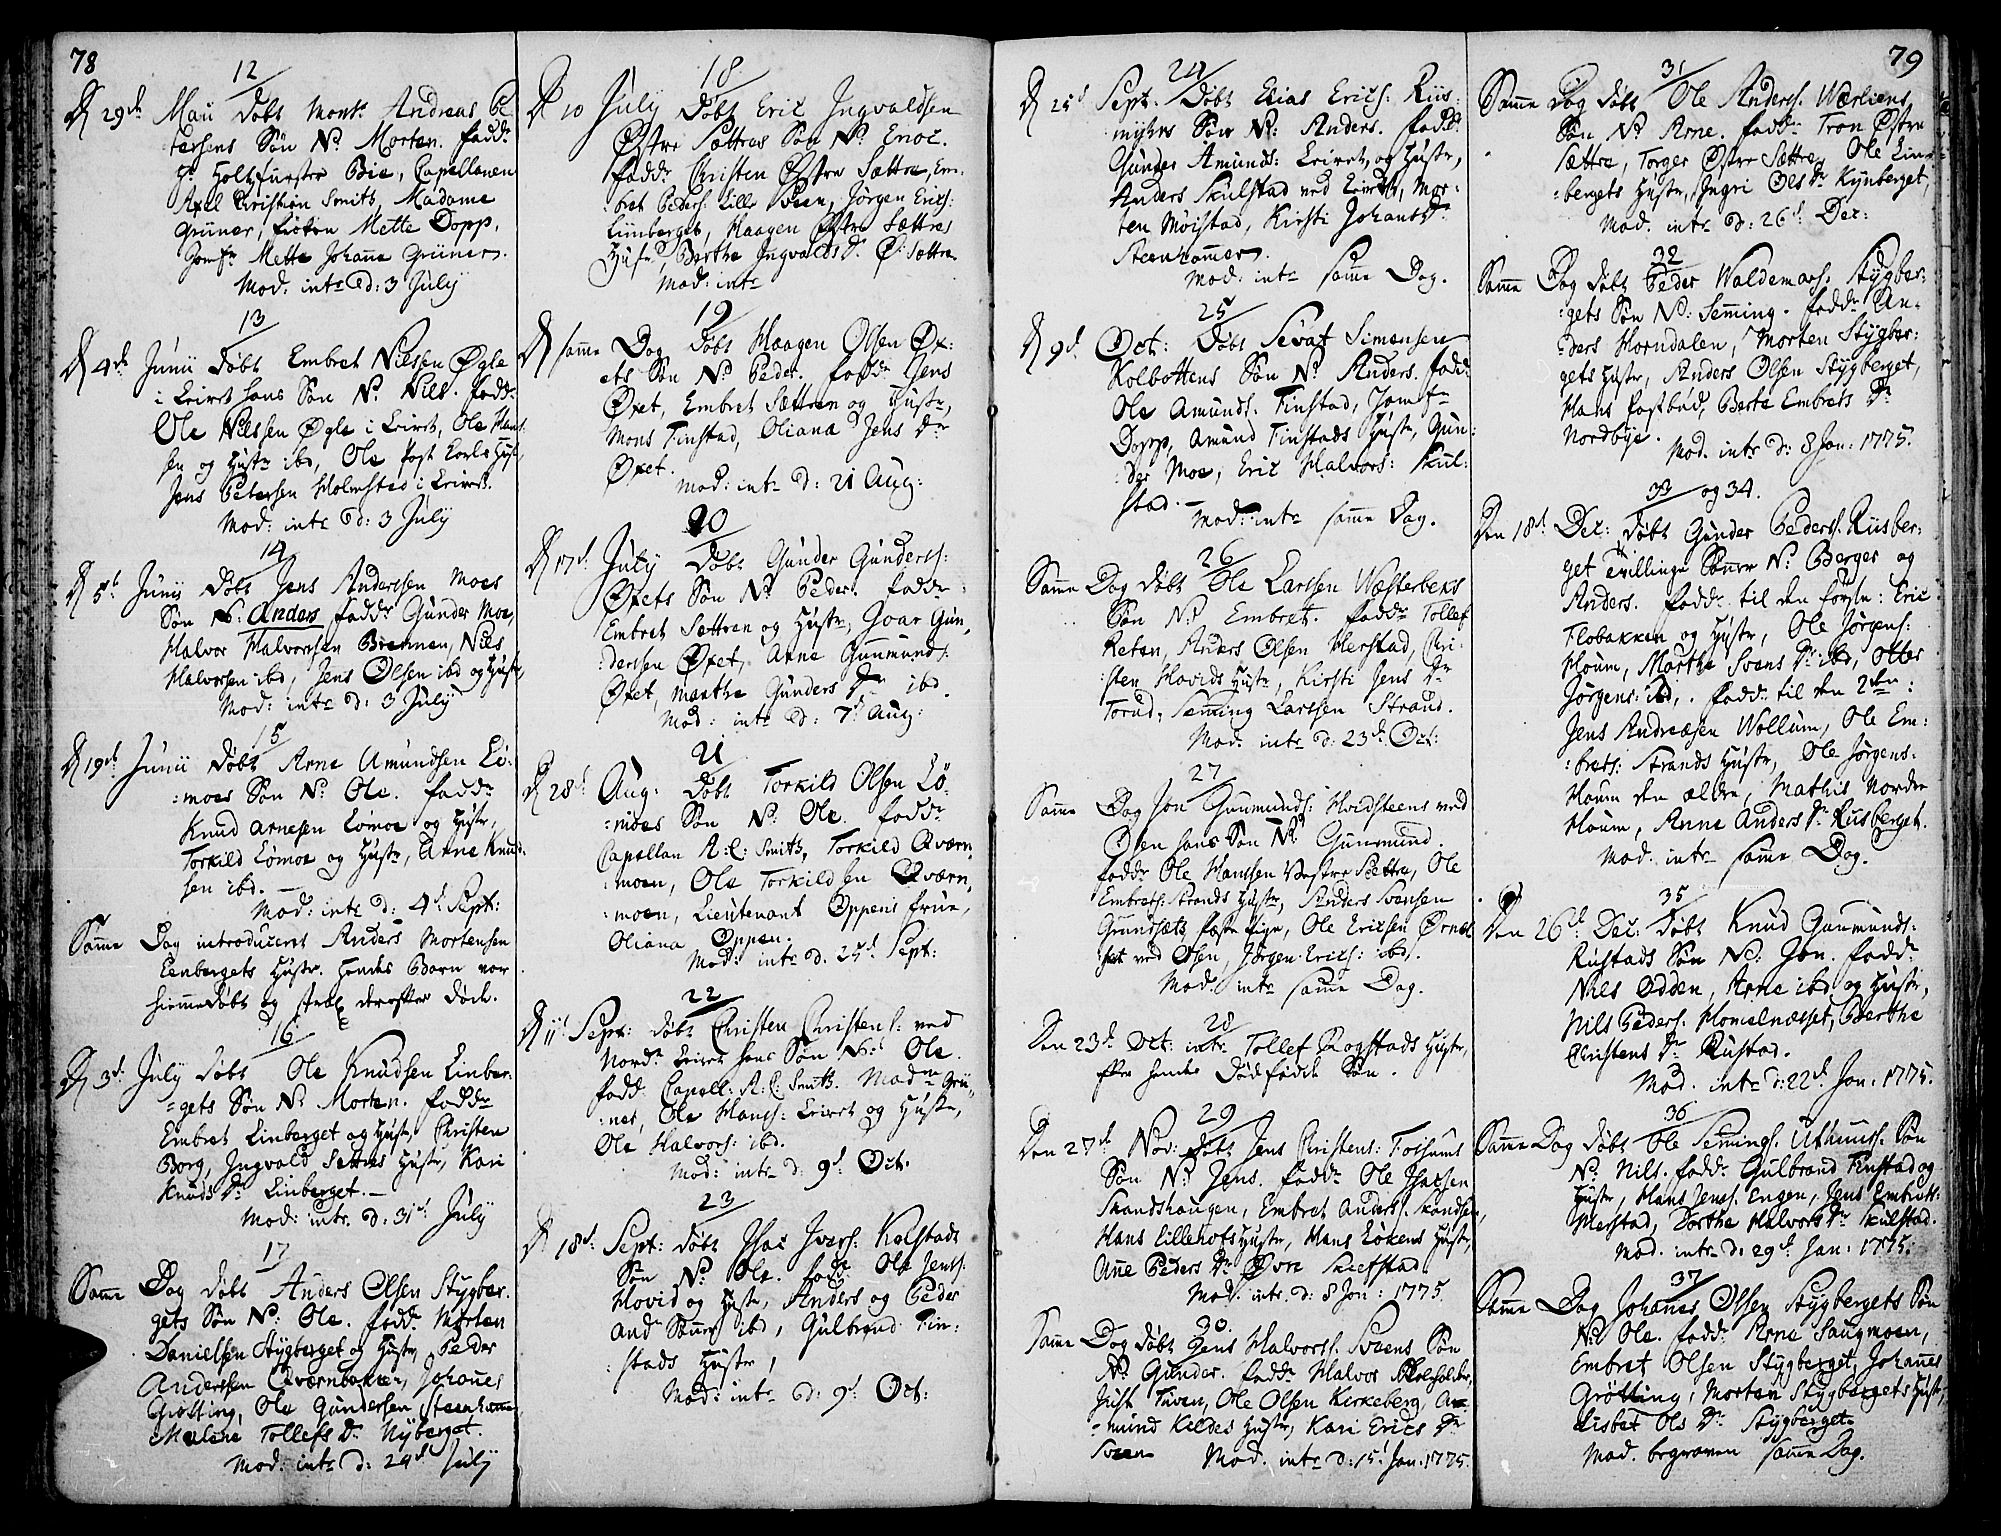 78
12
D 29de Maii Döbt Monsr Andreas Pe
tersens Sön N: Morten. fadd:
Hr Holtzfurster Bie, Capellanen
Axel Christian Smith, Madame
Grüner, fröken Mette Dopp,
Jomfr Mette Johanne Grüner.
Mod: intr d: 3 July
13
D 4de Junii Döbt Embret Nilsen Øgle
i Leiret hans Sön N: Nils. fadd:
Ole Nilssen Øgle i Leiret, Ole Hans
sen og Hustr ibd, Ole Post Karls Hust,
Jens Petersen Holmstad i Leiret.
Mod: intr d: 3 July
14
D 5t Junii Döbt Jens Anderssen Moes
Sön N: Anders fadd: Gunder Moe,
Halvor Halvorsen Brennen, Nils
Halvorsen ibd, Jens Olsen ibd og Hustr,
Mod: intr d: 3 July
15
D 19de Junii Döbt Arne Amundsen Lö:
:moes Sön N: Ole. fadd:
Knud Arnesen Lömoe og Hustr,
Torkild Lömoe og Hustr, Arne Knud:
sen ibd. —
Mod: intr d: 4d Sept:
Samme Dag introduceret Anders Mortensen
Eenbergets Hustr. Hendes Barn var
hiemmedöbt og strax derefter döde.
16
D 3d: July Döbt Ole Knudsen Linber:
:gets Sön N: Morten. fadd:
Embret Linberget og Hustr, Christen
Borg, Ingvald Settres Hustr, Kari
Knuds Dr Linberget. —
Mod: intr. d: 31d July
17
Samme Dag döbt Anders Olsen Stygber:
gets Sön N: Ole. fadd: Morten
Danielsen Stygberget og Hustr, Peder
Anderssen Qværnbakken, Johannes
Grötting, Ole Gundersen Steenhammer
Malene Tollefs Dr Nyberget.
Mod: intr d: 24d July
18
D 10 July Döbt Eric Ingvaldsen
Østre Sættres Sön N: Enoc.
fadd: Christen Østre Sættre, Em:
:bret Peders: Lille Sveen, Jörgen Erics:
Linberget, Haagen Østre Sættres
Hust Berthe Ingvalds Dr Ø: Sættre
Mod: intr
19
D samme Dag Döbt Haagen Olsen Øx:
ets Sön N: Peder. fadd: Jens
Øxet, Embret Sættren og Hustr,
Mons Finstad, Oliana Jens Dr
Øxet.
Mod: intr d: 21 Aug:
20
D 17d: July Döbt Gunder Gunderss:
Øxets Sön N: Peder. fadd:
Embret Sættren og Hustr, Goar Gun:
:derssen Øxet, Arne Gunmunds:
Øxet, Marthe Gunders Dr ibd.
Mod: intr d: 7d Aug:
21
D 28d: Aug: Döbt Torkild Olsen Lö:
:moes Sön N: Ole. fadd:
Capellan A: C: Smith, Torkild Qværn:
:moen, Ole Torkildsen Qværn:
:moen, Lieutenant Oppens frue,
Oliana Oppen.
Mod: intr d: 25d Sept:
22
D 11t Sept: döbt Christen Christens: ved
Nordr Leiret hans Sön N: Ole.
fadd: Capell: A: C: Smith. Madm Grü:
:ner, Ole Hanss: Leiret og Hustr,
Ole Halvors: ibd.
Mod: intr d: 9d Oct:
23
D 18d: Sept: döbt Isac Ivers: Kolstads
Sön N: Ole. fadd: Ole Jenss:
Hovid og Hustr, Anders og Peder
And: Sönner ibd, Gulbrand Fin:
:stads Hustr,
Mod: intr d: 9d Oct:
24
D 25d Sept: Döbt Elias Erics: Riis:
myhrs Sön N: Anders. fadd:
Gunder Amunds: Leiret, og Hustr,
Anders Skulstad ved Leiret, Mor:
ten Möistad, Kirsti Johans Dr
Steenhammer.
Mod: intr samme Dag.
25
D 9d. Oct: Döbt Sevat Simensen
Kolbottens Sön N: Anders. fadd:
Ole Amunds: Finstad, Jomfr
Dopp, Amund Finstads Hustr, Gun:
:der Moe, Eric Halvors: Skul:
stad. —
Mod: intr samme Dag.
26
Samme Dag döbt Ole Larssen Wæsterbens
Sön N: Embret. fadd: Tollef
Reten, Anders Olsen Herstad, Chri:
:sten Hovids Hustr, Kirsti Jens Dr
Torud, Semming Larssen Strand.
Mod. intr d: 23d Oct:
27
Samme Dag Jon Gunmunds: Hvidsteens ved
Osen hans Sön N: Gunmund.
fadd: Ole Hanssen Vestre Sættre, Ole
Embrets: Strands Hustr, Anders Svensen
Grundsæts fæste Pige, Ole Ericsen Ørnæs
set ved Osen, Jörgen Erics: ibd.
Mod. intr samme Dag.
28
Den 23d Oct: intr Tollef Rogstads Hustr,
efter hendes Dödfödde Sön.
29
Den 27d. Nov: döbt Jens Christens: Torsmus
Sön N: Jens. fadd: Ole Isacsen
Skandshaugen, Embret Anders: Skandsen,
Hans Lillehofs Hustr, Hans Lökens Hustr,
Anne Peders Dr Øvre Skiefstad.
Mod. intr. d: 8 Jan: 1775.
30.
Samme Dag döbt Jens Halvorss: Sveens Sön
N: Gunder. fadd: Halvor Skoleholder,
Just Tuven, Ole Olsen Kirkeberg, A
:mund Kildes Hustr, Kari Erics Dr
Sveen Mod. intr d: 15. Jan: 1775.
79
31
Samme Dag döbt Ole Anderss: Wærliens
Sön N: Arne. fadd: Tron Østre
Sættre, Torger Østre Sættre, Ole Lin:
:bergets Hustr, Ingri Ols Dr Kynberget,
Mod. intr d: 26d: Dec:
32
Samme Dag döbt Peder Woldemars: Stygber:
:gets Sön N: Semming. fadd: An:
:ders Horndalen, Morten Stygber:
gets Hustr, Anders Olsen Stygberget,
Hans Postbud, Berte Embrets Dr
Nordbye.
Mod. intr d: 8 Jan: 1775.
33 og 34.
Den 18d Dec: döbt Gunder Pederss: Riisber:
get Tvillinge Sönner N: Berger og
Anders. fadd: til den förste: Eric
Flobakken og Hustr, Ole Jörgens:
Houm, Marthe Svens Dr ibd, Otter
Jörgens: ibd, fadd: til den 2den:
Jens Andreæsen Wollum, Ole Em:
:brets: Strands Hustr, Ole Jörgens:
Houm den ældre, Mathis Nordre
Houm, Anne Anders Dr Riisberget.
Mod. intr samme Dag.
35
Den 26d Dec: Döbt Knud Gunmunds:
Rustads Sön N: Jon. fadd:
Niels Odden, Arne ibd og Hustr,
Nils Peders: Homelnæsset, Berthe
Christens Dr Rustad.
Mod. intr d: 22d. Jan: 1775.
36
Samme Dag döbt Ole Semmings: Uthuuss: Sön
N: Nils. fadd: Gulbrand Finstad og
Hustr, Hans Jens: Engen, Jens Embrets:
Merstad, Dorthe Halvors Dr Skulstad.
Mod. intr d: 29d. Jan: 1775.
37
Samme Dag Johannes Olsen Stygbergets Sön
N: Ole. fadd: Arne Haugmoen,
Embret Olsen Stygberget, Johannes
Grötting, Morten Stygbergets Hustr,
Lisbet Ols Dr Stygberget.
Mod. begraven samme Dag.